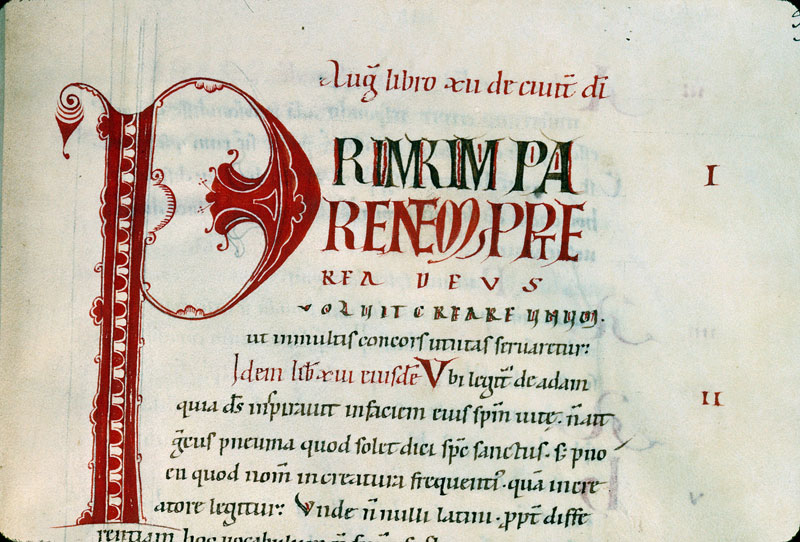 Aug̃ libro xii de ciuit̃ dĩ
PRIMUM PA
I
RENTEM PPTE
REA DEUS
VOLUIT CREARE UNUM.
ut inmultis concors unitas seruaretur:
Idem lib̃ xiii eiusdẽ Vbi legit᷑ de adam
II
quia d̃s inspirauit infaciem eius sp̃m uitẹ. ñ ait
g̃cus pneuma quod solet dici sp̃c sanctus. s; pno
en quod nom̃ increatura frequenti᷑. quã incre
atore legitur: Vnde ñ nulli latini. ꝓpt̃ diffe
rentiam hoc uocabulum